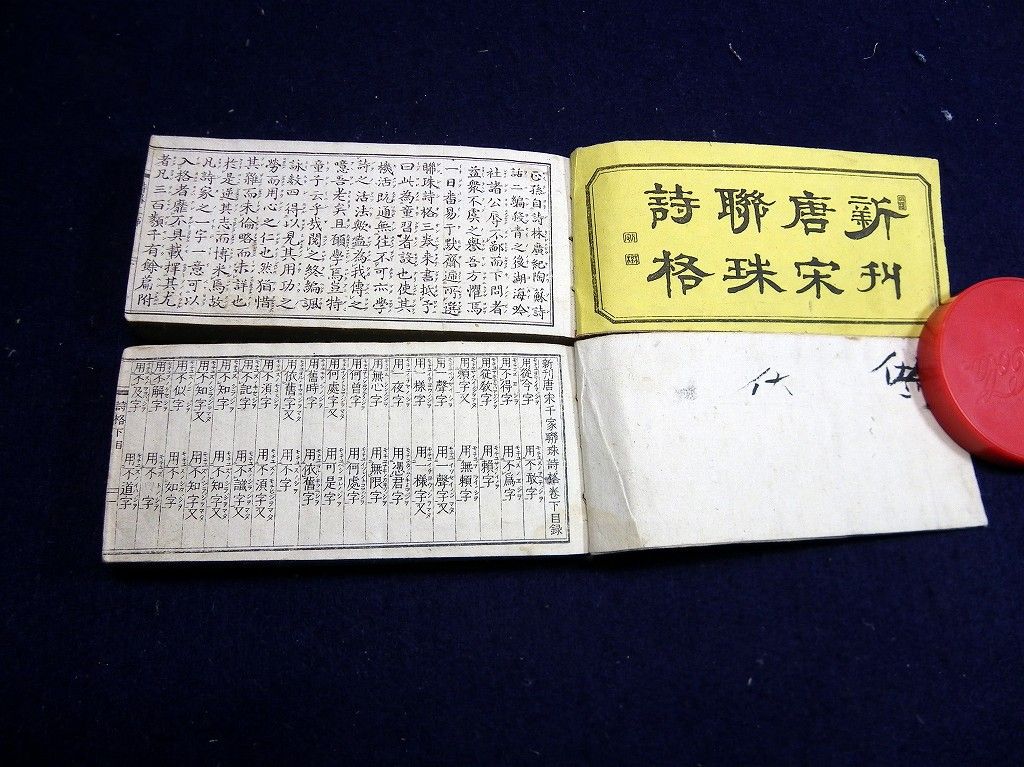 新刋
唐宋
聯珠
詩格
正孫自詩林廣紀陶蘇詩
話二編殺青之後湖海吟
社諸公辱不鄙而下問者
益衆不虞之譽吾方懼焉
一日番昜于默齋遞所選
聯珠詩格三表來書抵予
曰此爲童習者設也使其
機活助通無往不可亦學
詩之活法歟盍爲我傳之
噫吾老矣且願學焉豈特
童子云乎哉閱之終編諷
詠數四得以見其用功之
勞而用心之仁也然猶惜
其雜而未倫略而未詳也
於是逆其志而博采焉故
凡詩家之一字一意可以
入格者靡不具載擇其尤
者凡三百類千有餘篇附
新刻唐宋千家聯珠詩格卷下目錄
用從今字
用不敢字
用不得字
用不爲字
用從敎字
用賴字
用賴字又
用無賴字
用一聲字
用一聲字又
用一樣字
用一樣字又
用一夜字
用憑君字
用無心字
用無限字
用何曾字
用何處字
用何處字又
用可是字
用舊時字
用依舊字
用依舊字又
用不字
用不須字
用不須字又
用不記字
用不識字
用不知字
用不知字又
用不知字又
用不知字又
用不似字
用不知字
用不解字
用不及字
用不道字
詩格下目
代